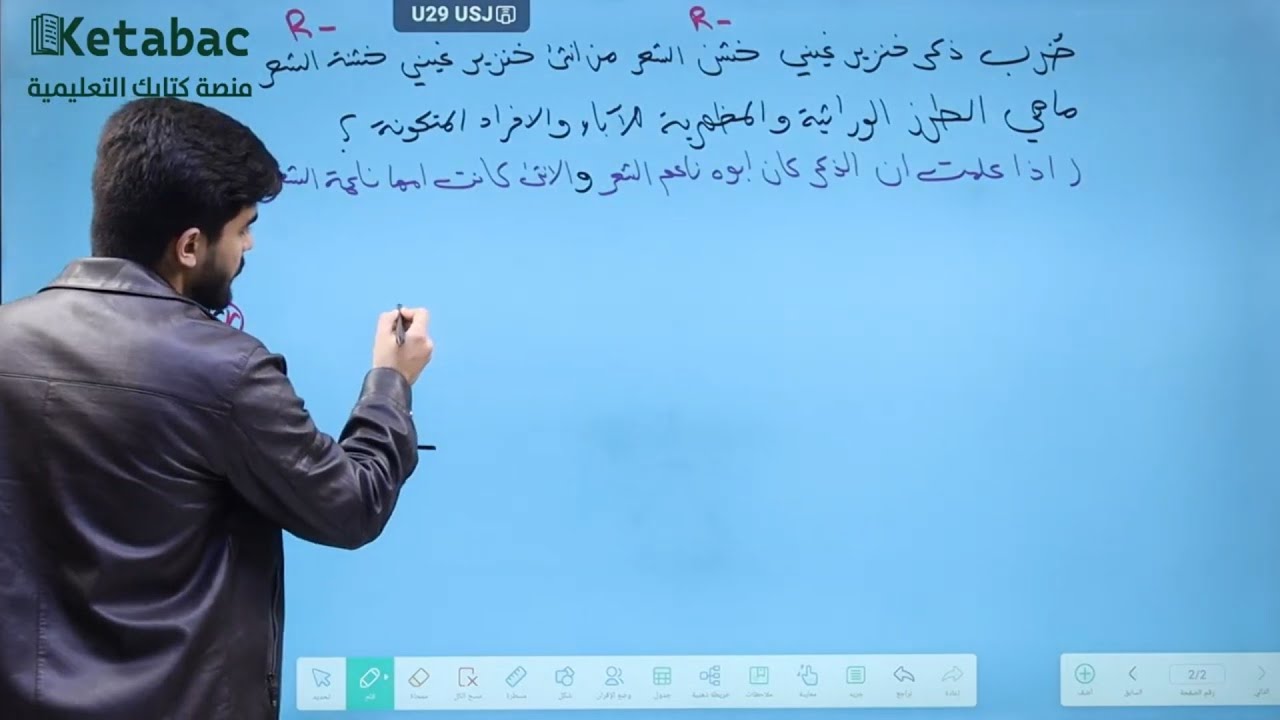 Ketabac
منصة كتابك التعليمية
U29 USJ
R- R-
ضُرب ذكر خنزير غيني خشن الشعر من انثى خنزير غيني خشنة الشعر
ماهي الطرز الوراثية والمظهرية للآباء والافراد المتكونة ؟
( اذا علمت ان الذكر كان ابوه ناعم الشعر والانثى كانت امها ناعمة
r
تحديد
قلم
ممحاة
مسح الكل
مسطرة
شكل
وضع الإقران
جدول
خريطة ذهنية
ملاحظات
معاينة
مزيد
تراجع
إعادة
أضف
السابق
2/2
رقم الصفحة
التالي